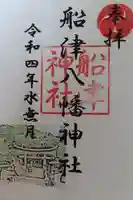 奉拝
船津八幡神社
神社
令和四年水無月